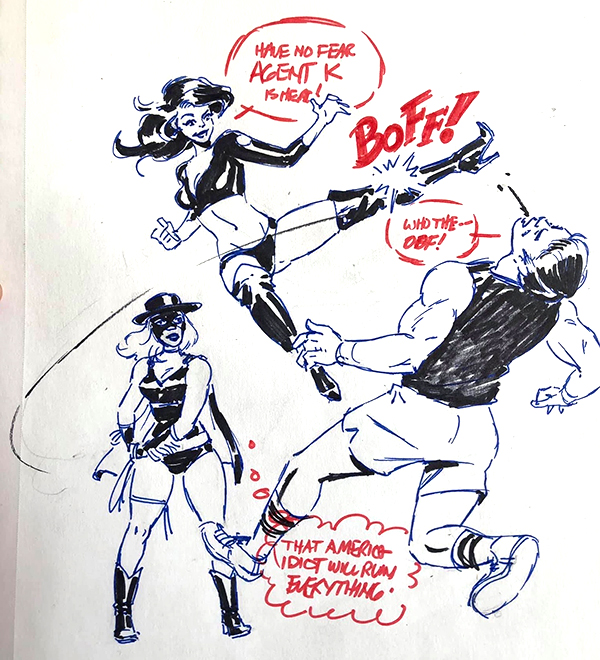 HAVE NO FEAR
AGENT K
IS HERE!
BOFF!
WHO THE--
OBF!
THAT AMERICA-
IDIOT WILL RUIN
EVERYTHING.